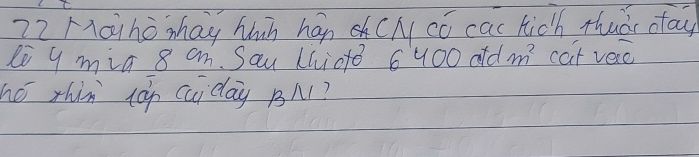 22 Một hố nhảy hình hộp CN có các kích thước đáy
là 4 m và 8 m. Sau khi đổ 6400 dm³ cát vào
hố thì lớp cát dày BN?